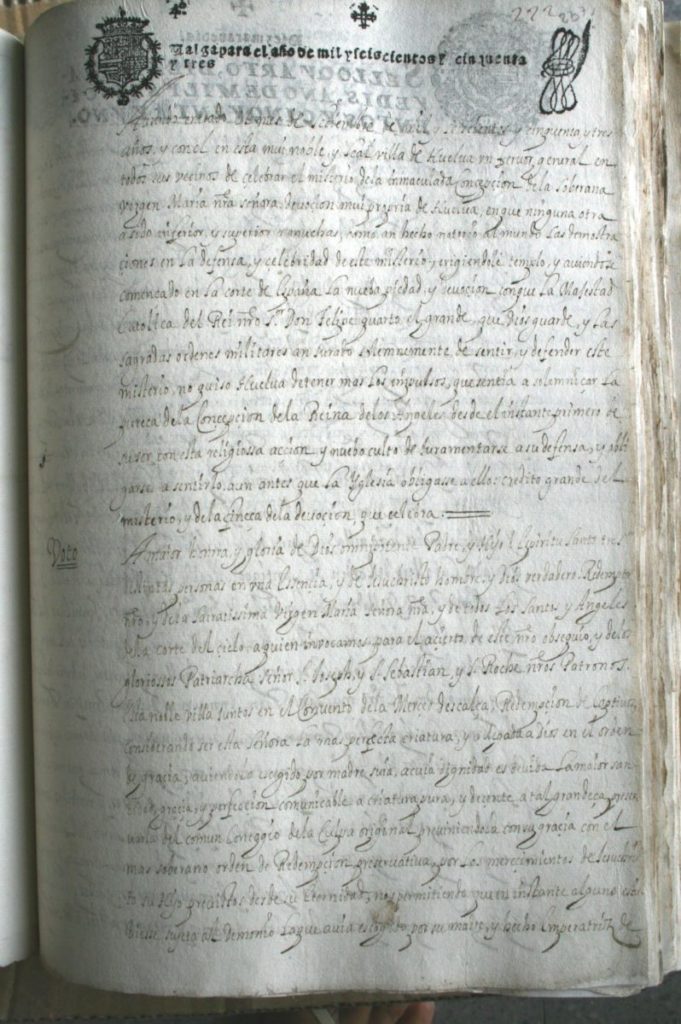 222
Valga para el año de mil y seiscientos y cinquenta
y tres
Aviendo entrado el mes de setiembre de mil y seiscientos y cinquenta, y tres
años, y con el en esta mui noble, y leal villa de Huelva un fervor general en
todos sus vecinos de celebrar el misterio de la inmaculada Concepcion de la soberana
virgen Maria nra señora, devocion mui propria de Huelva, en que ninguna otra
a sido inferior, y superior a muchas, como an hecho notorio al mundo las demostra
ciones en la defensa, y celebridad de este misterio, erigiendole templo, y aviendose
comencado en la corte de España la nueba piedad, y devocion conque la Magestad
Catolica del Rei nro Sr Don Felipe quarto el grande, que Dios guarde, y las
sagradas ordenes militares an jurado solemnemente de sentir, y defender este
misterio, no quiso Huelva detener mas los impulsos, que sentia a solemniçar la
pureça de la Concepcion de la Reina de los Angeles desde el instante primero de
su ser con esta religiossa accion y nuebo culto de juramentarse a su defensa, y obli
garse a sentirlo aun antes que la Yglesia obligasse a ello: credito grande del
misterio, y de la fineça de la devocion, que celebra.
Voto
A maior honrra, y gloria de Dios omnipotente Padre, y Hijo i Espiritu Santo tres
distintas personas en una Essencia, y de Jesuchristo hombre, y Dios verdadero Redemptor
nro, y de la sacratissima virgen Maria señora nra, y de todos los Santos y Angeles
de la corte del cielo, a quien invocamos para el acierto de este nro obsequio, y de los
gloriossos Patriarcha señor S. Joseph, y S. Sebastian, y S. Roche nros Patronos.
Esta noble villa juntos en el Convento de la Merced descalça, Redempcion de Captivos
considerando ser esta señora la mas perfecta criatura, y acepta a Dios en el orden
de gracia, aviendola elegido por madre suia, a cuia dignidad es devida la maior san
tidad, gracia, y perfeccion comunicable a criatura pura, y decente a tal grandeça, preser
varla del comun contaggio de la culpa original previniendola con su gracia con el
mas soberano orden de Redempcion preservativa, por los merecimientos de Jesuchris
to su Hijo previstos desde su Eternidad, no permitiendo que en instante alguno estu
biesse sujeta al Demonio la que avia escogido por su madre, y hecho Imperatriz de